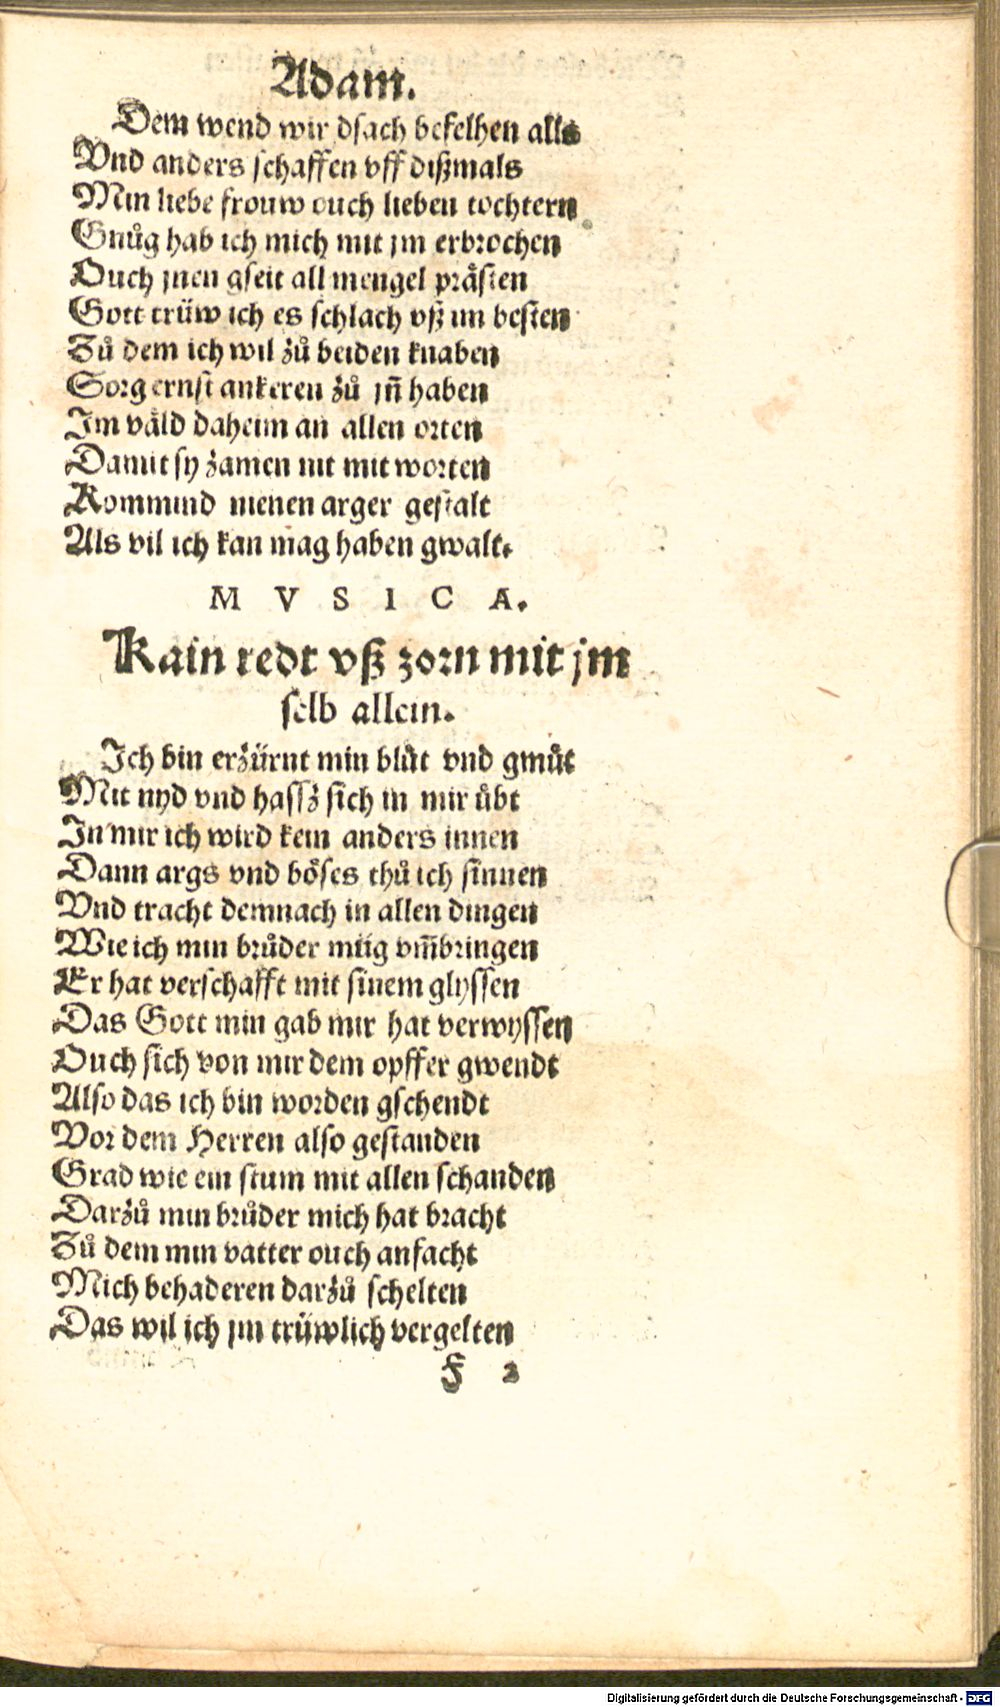 Adam.
Dem wend wir dsach befelhen alls
Vnd anders schaffen vff dißmals
Min liebe frouw ouch lieben tochtern
Gnuͦg hab ich mich mit jm erbrochen
Ouch jnen gseit all mengel praͤsten
Gott trüw ich es schlach vß im besten
Zuͦ dem ich wil zuͦ beiden knaben
Sorg ernst ankeren zuͦ jñ haben
Im vaͤld daheim an allen orten
Damit sy zamen nit mit worten
Kommind nienen arger gestalt
Als vil ich kan mag haben gwalt.
M V S I C A.
Kain redt vß zorn mit jm
selb allein.
Ich bin erzürnt min bluͦt vnd gmuͤt
Mit nyd vnd hassz sich in mir uͤbt
In mir ich wird kein anders innen
Dann args vnd boͤses thuͦ ich sinnen
Vnd tracht demnach in allen dingen
Wie ich min bruͦder müg vm̄bringen
Er hat verschafft mit sinem glyssen
Das Gott min gab mir hat verwyssen
Ouch sich von mir dem opffer gwendt
Also das ich bin worden gschendt
Vor dem Herren also gestanden
Grad wie ein stum mit allen schanden
Darzuͦ min bruͦder mich hat bracht
Zuͦ dem min vatter ouch anfacht
Mich behaderen darzuͦ schelten
Das wil ich jm trüwlich vergelten
F 2
Digitalisierung gefördert durch die Deutsche Forschungsgemeinschaft - DFG